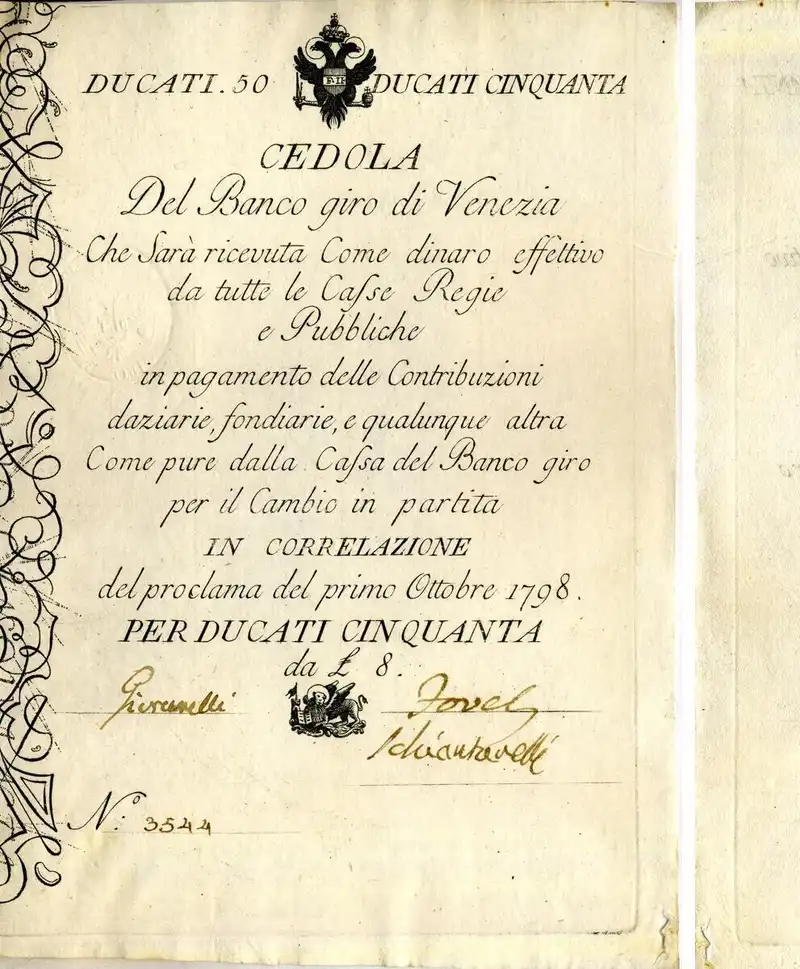 DUCATI. 50 DUCATI CINQUANTA
CEDOLA
Del Banco giro di Venezia
Che Sarà ricevuta Come dinaro effèttivo
da tutte le Caſse Regie
e Pubbliche
in pagamento delle Contribuzioni
daziarie, fondiarie, e qualunque altra
Come pure dalla Caſsa del Banco giro
per il Cambio in partita
IN CORRELAZIONE
del proclama del primo Ottobre 1798.
PER DUCATI CINQUANTA
da £ 8.
Giovanelli
N.º 3544